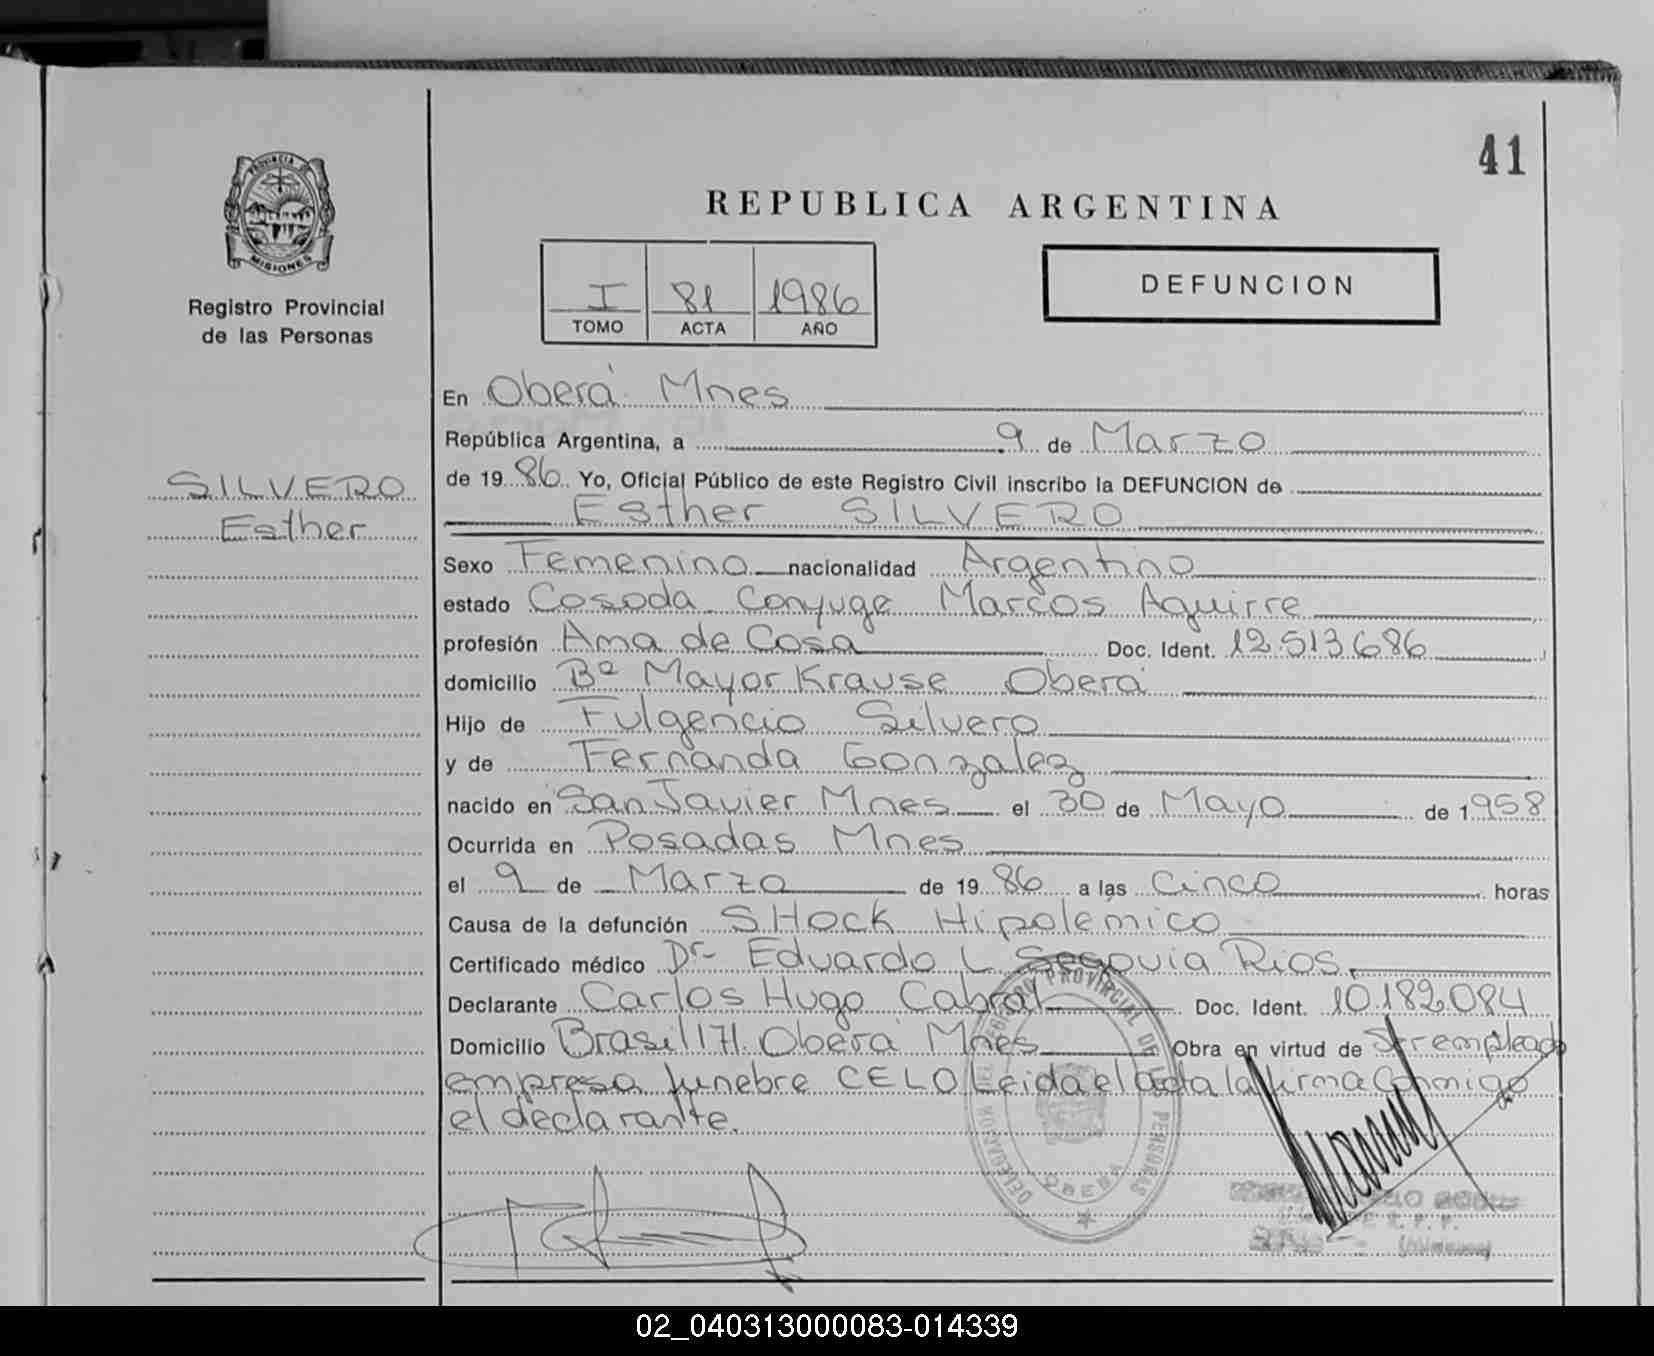 41
PROVINCIA DE
MISIONES
Registro Provincial
de las Personas
REPUBLICA ARGENTINA
I 81 1986
TOMO ACTA AÑO
DEFUNCION
SILVERO
Esther
En Oberá Mnes
República Argentina, a 9 de Marzo
de 1986 Yo, Oficial Público de este Registro Civil inscribo la DEFUNCION de
Esther SILVERO
Sexo Femenino nacionalidad Argentino
estado Casada Conyuge Marcos Aguirre
profesión Ama de Casa Doc. Ident. 12.513.686
domicilio Bº Mayor Krause Oberá
Hijo de Fulgencio Silvero
y de Fernanda Gonzalez
nacido en San Javier Mnes el 30 de Mayo de 1958
Ocurrida en Posadas Mnes
el 9 de Marzo de 1986 a las Cinco horas
Causa de la defunción SHock Hipolemico
Certificado médico Dr Eduardo L Segovia Rios,
Declarante Carlos Hugo Cabral Doc. Ident. 10.182.084
Domicilio Brasil 171. Oberá Mnes Obra en virtud de Ser empleado
empresa funebre CELO Leida el acta la firma Conmigo
el declarante.
REGISTRO PROVINCIAL DE LAS PERSONAS
OBERA
02_040313000083-014339